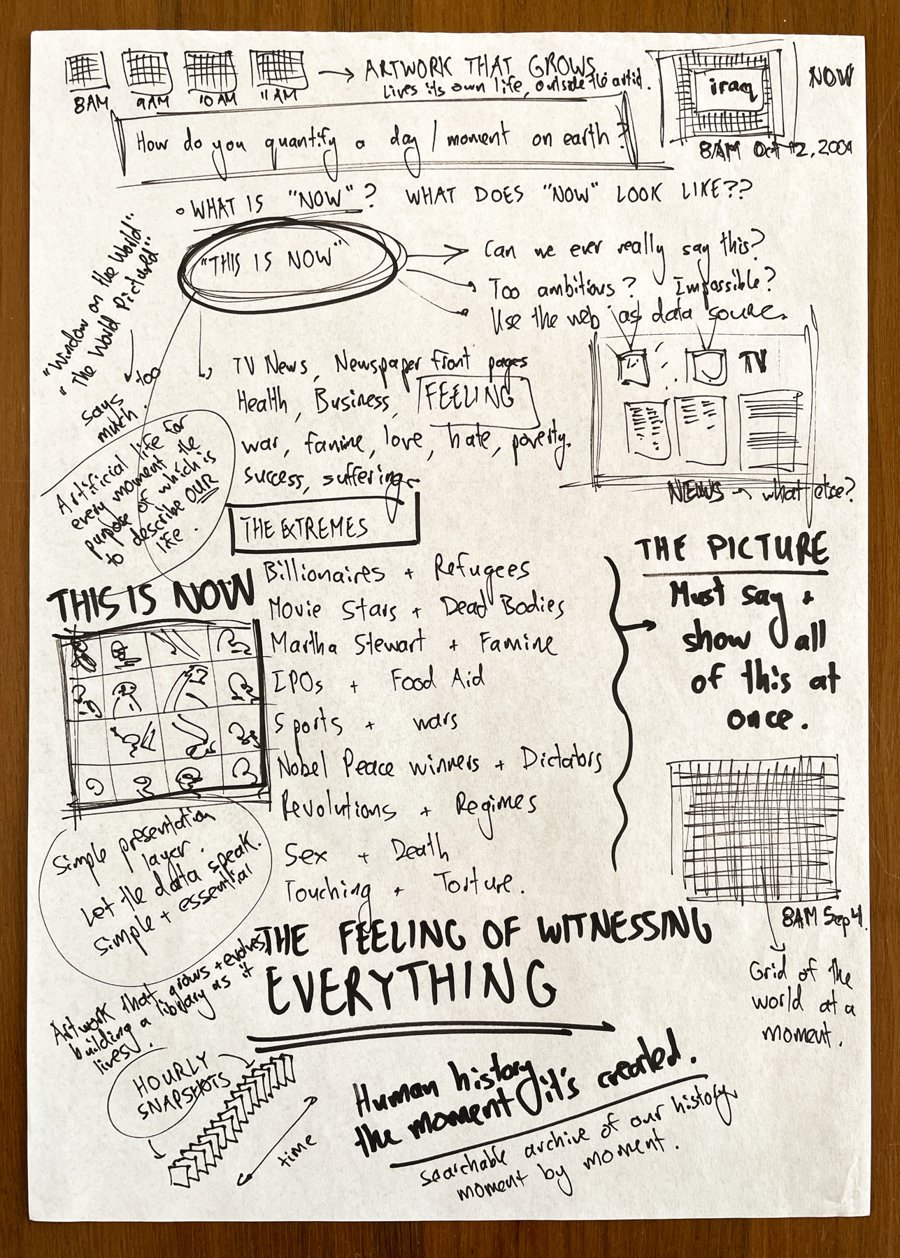 8AM 9AM 10AM 11AM
ARTWORK THAT GROWS
Lives its own life, outside the artist.
iraq
NOW
8AM Oct 12, 2004
How do you quantify a day / moment on earth?
WHAT IS "NOW"? WHAT DOES "NOW" LOOK LIKE??
"THIS IS NOW"
Can we ever really say this?
Too ambitious? Impossible?
Use the web as data source.
"Window on the World"
"The World Pictured"
says too
much.
TV
NEWS what else?
TV News, Newspaper front pages
Health, Business, FEELING
war, famine, love, hate, poverty.
success, suffering.
Artificial life for
every moment the
purpose of which is
to describe OUR
life.
THE EXTREMES
Billionaires + Refugees
Movie Stars + Dead Bodies
Martha Stewart + Famine
IPOs + Food Aid
Sports + wars
Nobel Peace winners + Dictators
Revolutions + Regimes
Sex + Death
Touching + Torture.
THE PICTURE
Must say +
show all
of this at
once.
THIS IS NOW
Simple presentation
layer.
Let the data speak.
Simple + essential
8AM Sep 4.
Grid of the
world at a
moment.
THE FEELING OF WITNESSING
EVERYTHING
Artwork that grows + evolves,
building a library as it
lives.
HOURLY
SNAPSHOTS
time
Human history
the moment it's created.
searchable archive of our history
moment by moment.